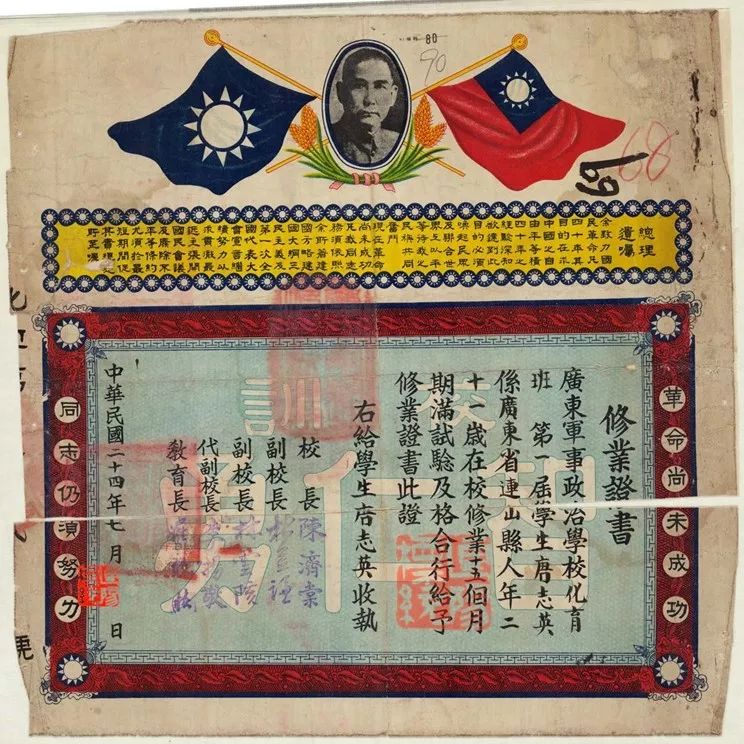 80
90
68
69
總理
遺囑
余致力國
民革命凡
四十年其
目的在求
中國之自
由平等積
四十年之
經驗深知
欲達到此
目的必須
喚起民眾
及聯合世
界上以平
等待我之
民族共同
奮鬥
現在革命
尚未成功
凡我同志
務須依照
余所著建
國方略建
國大綱三
民主義及
第一次全
國代表大
會宣言繼
續努力以
求貫澈最
近主張開
國民會議
及廢除不
平等條約
尤須於最
短期間促
其實現是
所至囑
革命尚未成功
同志仍須努力
校訓
智仁勇
修業證書
廣東軍事政治學校化育
班 第一屆學生唐志英
係廣東省連山縣人年二
十一歲在校修業十五個月
期滿試驗及格合行給予
修業證書此證
右給學生唐志英收執
校長陳濟棠
副校長
副校長
代副校長
教育長
中華民國二十四年七月 日